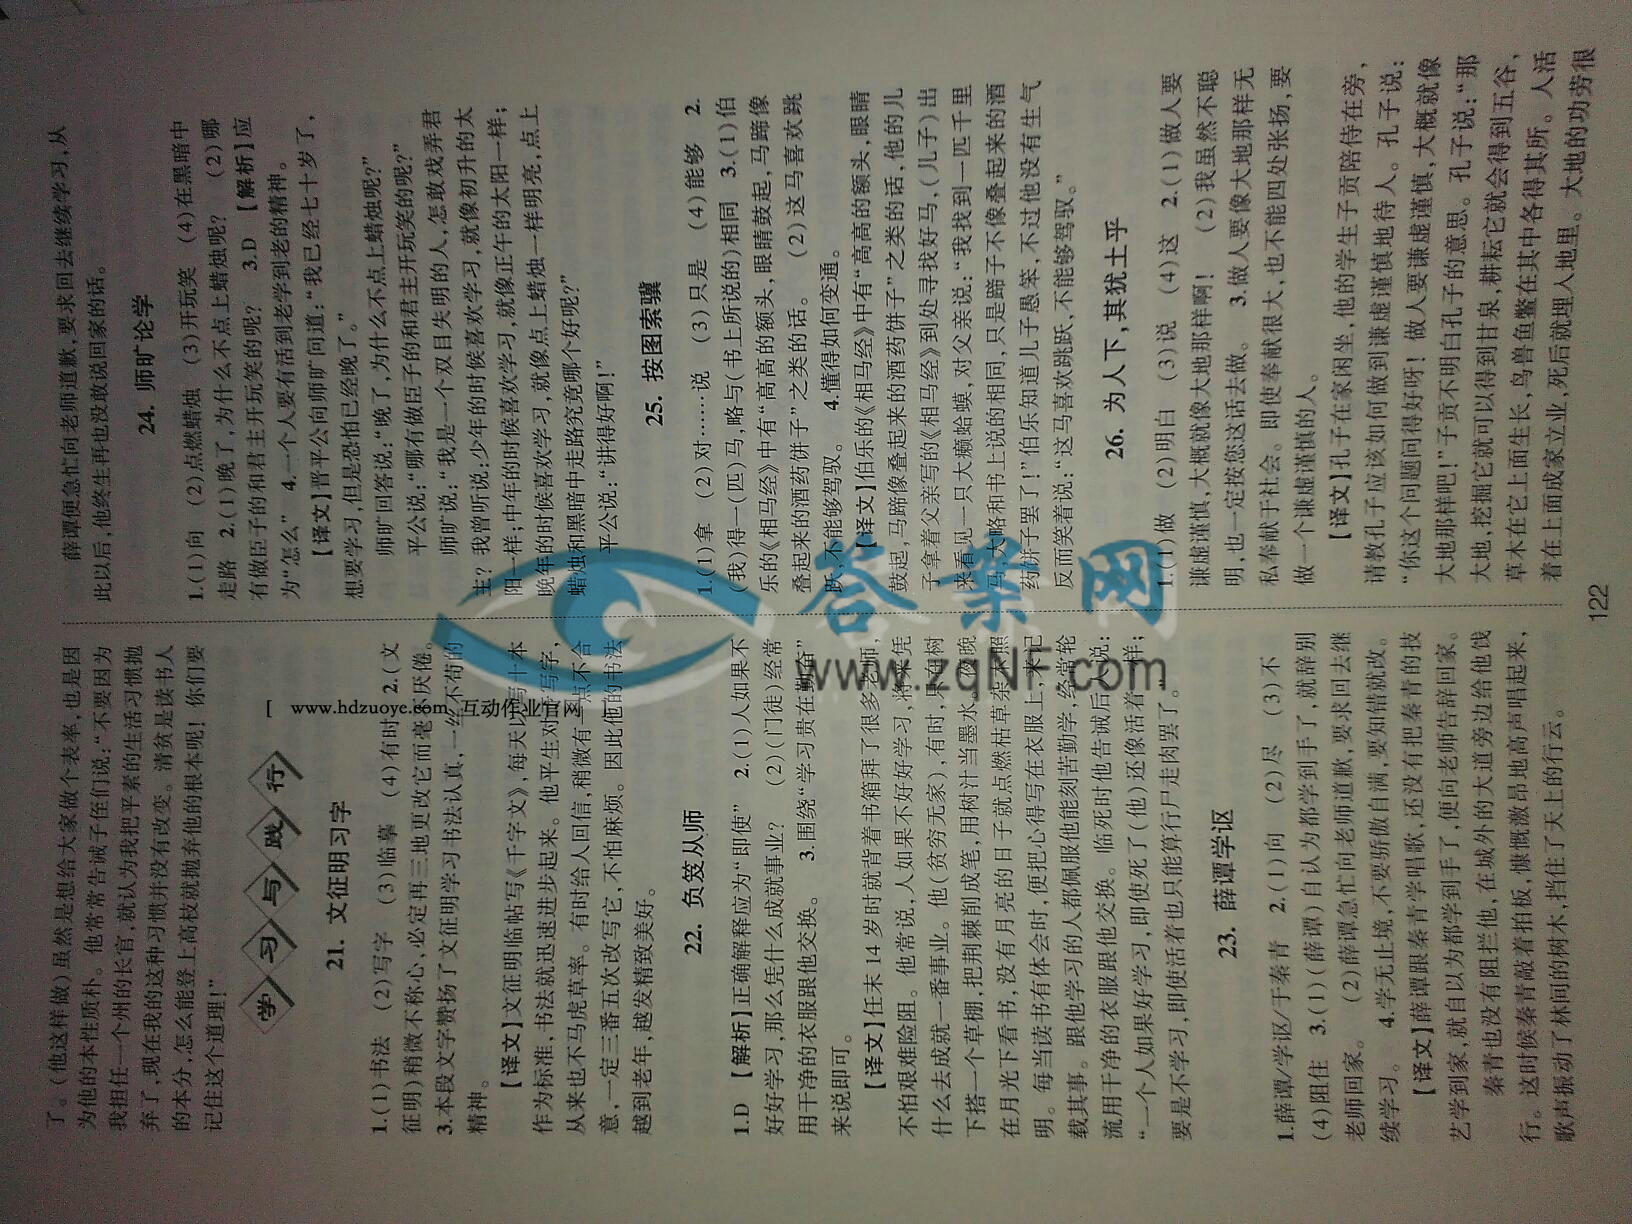 了。(他这样做)虽然是想给大家做个表率,也是因
为他的本性质朴。他常常告诫子侄们说:“不要因为
我担任一个州的长官,就认为我把平素的生活习惯抛
弃了,现在我的这种习惯并没有改变。清贫是读书人
的本分,怎么能登上高枝就抛弃他的根本呢!你们要
记住这个道理!”
学习与践行
21. 文征明习字
1.(1)书法 (2)写字 (3)临摹 (4)有时 2.(文
征明)稍微不称心,必定再三地更改它而毫不厌倦。
3.本段文字赞扬了文征明学习书法认真,一丝不苟的
精神。
【译文】文征明临帖写《千字文》,每天以写十本
作为标准,书法就迅速进步起来。他平生对于写字,
从来也不马虎草率。有时给人回信,稍微有一点不合
意,一定三番五次改写它,不怕麻烦。因此他的书法
越到老年,越发精致美好。
22. 负笈从师
1.D 【解析】正确解释应为“即使” 2.(1)人如果不
好好学习,那么凭什么成就事业? (2)(门徒)经常
用干净的衣服跟他交换。 3.围绕“学习贵在勤奋”
来说即可。
【译文】任末 14 岁时就背着书箱拜了很多老师,
不怕艰难险阻。他常说,人如果不好好学习,将来凭
什么去成就一番事业。他(贫穷无家),有时,只在树
下搭一个草棚,把荆棘削成笔,用树汁当墨水。夜晚
在月光下看书,没有月亮的日子就点燃枯草杂木照
明。每当读书有体会时,便把心得写在衣服上,来记
载其事。跟他学习的人都佩服他能刻苦勤学,经常轮
流用干净的衣服跟他交换。临死时他告诫后人说:
“一个人如果好学习,即使死了(他)还像活着一样;
要是不学习,即使活着也只能算行尸走肉罢了。”
23. 薛谭学讴
1.薛谭/学讴/于秦青 2.(1)向 (2)尽 (3)不
(4)阻住 3.(1)(薛谭)自认为都学到手了,就辞别
老师回家。 (2)薛谭急忙向老师道歉,要求回去继
续学习。 4.学无止境,不要骄傲自满,要知错就改。
【译文】薛谭跟秦青学唱歌,还没有把秦青的技
艺学到家,就自以为都学到手了,便向老师告辞回家。
秦青也没有阻拦他,在城外的大道旁边给他饯
行。这时候秦青敲着拍板,慷慨激昂地高声唱起来,
歌声振动了林间的树木,挡住了天上的行云。
薛谭便急忙向老师道歉,要求回去继续学习,从
此以后,他终生再也没敢说回家的话。
24. 师旷论学
1.(1)向 (2)点燃蜡烛 (3)开玩笑 (4)在黑暗中
走路 2.(1)晚了,为什么不点上蜡烛呢? (2)哪
有做臣子的和君主开玩笑的呢? 3.D 【解析】应
为“怎么” 4.一个人要有活到老学到老的精神。
【译文】晋平公向师旷问道:“我已经七十岁了,
想要学习,但是恐怕已经晚了。”
师旷回答说:“晚了,为什么不点上蜡烛呢?”
平公说:“哪有做臣子的和君主开玩笑的呢?”
师旷说:“我是一个双目失明的人,怎敢戏弄君
主?我曾听说:少年的时候喜欢学习,就像初升的太
阳一样;中年的时候喜欢学习,就像正午的太阳一样;
晚年的时候喜欢学习,就像点上蜡烛一样明亮,点上
蜡烛和黑暗中走路究竟哪个好呢?”
平公说:“讲得好啊!”
25. 按图索骥
1.(1)拿 (2)对……说 (3)只是 (4)能够 2.
(我)得一(匹)马,略与(书上所说的)相同 3.(1)伯
乐的《相马经》中有“高高的额头,眼睛鼓起,马蹄像
叠起来的酒药饼子”之类的话。 (2)这马喜欢跳
跃,不能够驾驭。 4.懂得如何变通。
【译文】伯乐的《相马经》中有“高高的额头,眼睛
鼓起,马蹄像叠起来的酒药饼子”之类的话,他的儿
子拿着父亲写的《相马经》到处寻找好马,(儿子)出
来看见一只大癞蛤蟆,对父亲说:“我找到一匹千里
马,大略和书上说的相同,只是蹄子不像叠起来的酒
药饼子罢了!”伯乐知道儿子愚笨,不过他没有生气
反而笑着说:“这马喜欢跳跃,不能够驾驭。”
26. 为人下,其犹土乎
1.(1)做 (2)明白 (3)说 (4)这 2.(1)做人要
谦虚谨慎,大概就像大地那样啊! (2)我虽然不聪
明,也一定按您这话去做。 3.做人要像大地那样无
私奉献于社会。即使奉献很大,也不能四处张扬,要
做一个谦虚谨慎的人。
【译文】孔子在家闲坐,他的学生子贡陪侍在旁,
请教孔子应该如何做到谦虚谨慎地待人。孔子说:
“你这个问题问得好呀!做人要谦虚谨慎,大概就像
大地那样吧!”子贡不明白孔子的意思。孔子说:“那
大地,挖掘它就可以得到甘泉,耕耘它就会得到五谷,
草木在它上面生长,鸟兽鱼鳖在其中各得其所。人活
着在上面成家立业,死后就埋入地里。大地的功劳很
122
www.hdzuoye.com 互动作业官网
答案网
www.zqnf.com